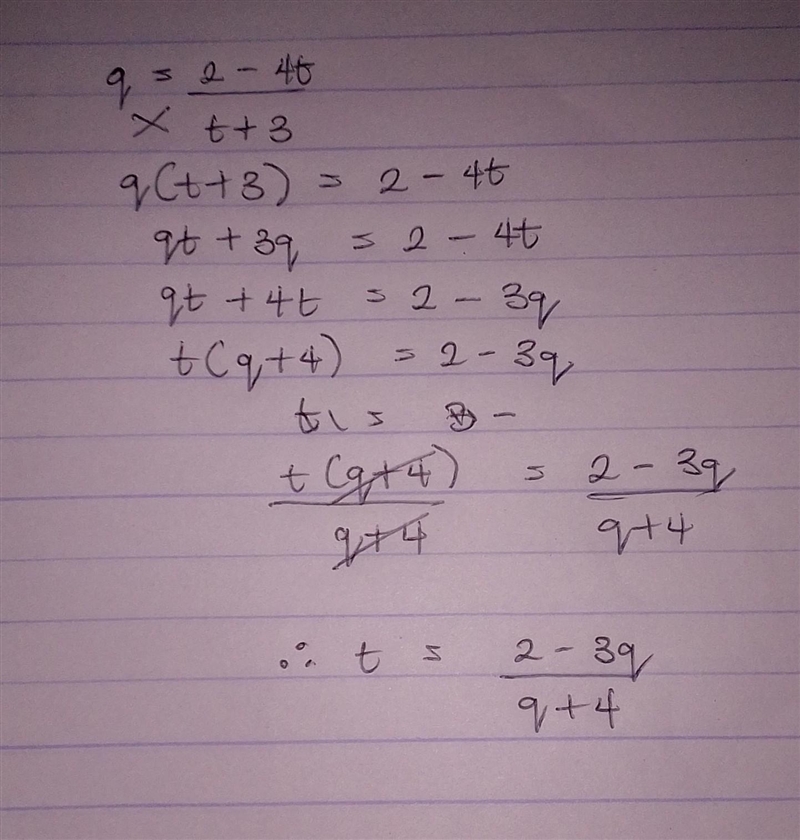 q = 2 - 4t
× t + 3
q(t+3) = 2 - 4t
qt + 3q = 2 - 4t
qt + 4t = 2 - 3q
t(q+4) = 2 - 3q
t =  -
t(q+4) = 2 - 3q
q+4 q+4
∴ t = 2 - 3q
q+4